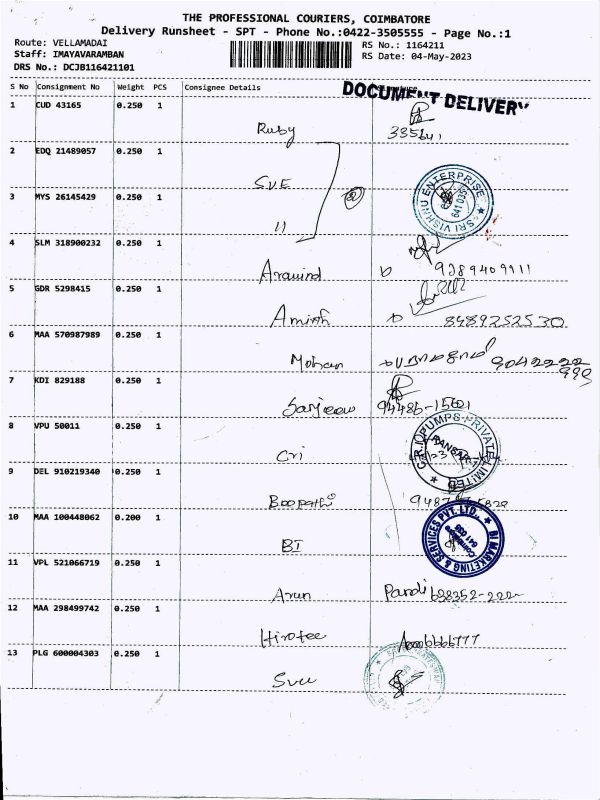 THE PROFESSIONAL COURIERS, COIMBATORE
Delivery Runsheet - SPT - Phone No.:0422-3505555 - Page No.:1
Route: VELLAMADAI
RS No.: 1164211
Staff: IMAYAVARAMBAN
RS Date: 04-May-2023
DRS No.: DCJB116421101
S No Consignment No Weight PCS Consignee Details
DOCUMENT DELIVERY
1 CUD 43165 0.250 1
Ruby
2 EDQ 21489057 0.250 1
SVE
SRI VISHNU ENTERPRISE
3 MYS 26145429 0.250 1
11
4 SLM 318900232 0.250 1
Aravind 9289409911
5 GDR 5298415 0.250 1
Amirth 8489252530
6 MAA 570987989 0.250 1
Mohan 9042222
999
7 KDI 829188 0.250 1
Sanjeev
8 VPU 50011 0.250 1
Cri
C.R.I. PUMPS PRIVATE LIMITED
9 DEL 910219340 0.250 1
Boopathi
10 MAA 100448062 0.200 1
BI
BI MARKETING & SERVICES PVT. LTD.,
Coimbatore
641 038
11 VPL 521066719 0.250 1
Arun Pandi 628352-222
12 MAA 298499742 0.250 1
Hirotec
13 PLG 600004303 0.250 1